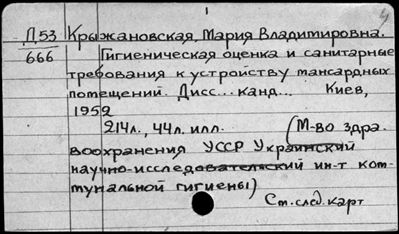 Д53 Крыжановская, Мария Владимировна.
666 Гигиеническая оценка и санитарные
требования к устройству мансардных
помещений. Дисс... канд... Киев,
1952
214л., 44л. илл. (М-во здра-
воохранения УССР Украинский
научно-исследовательский ин-т ком-
мунальной гигиены)
См. след. карт